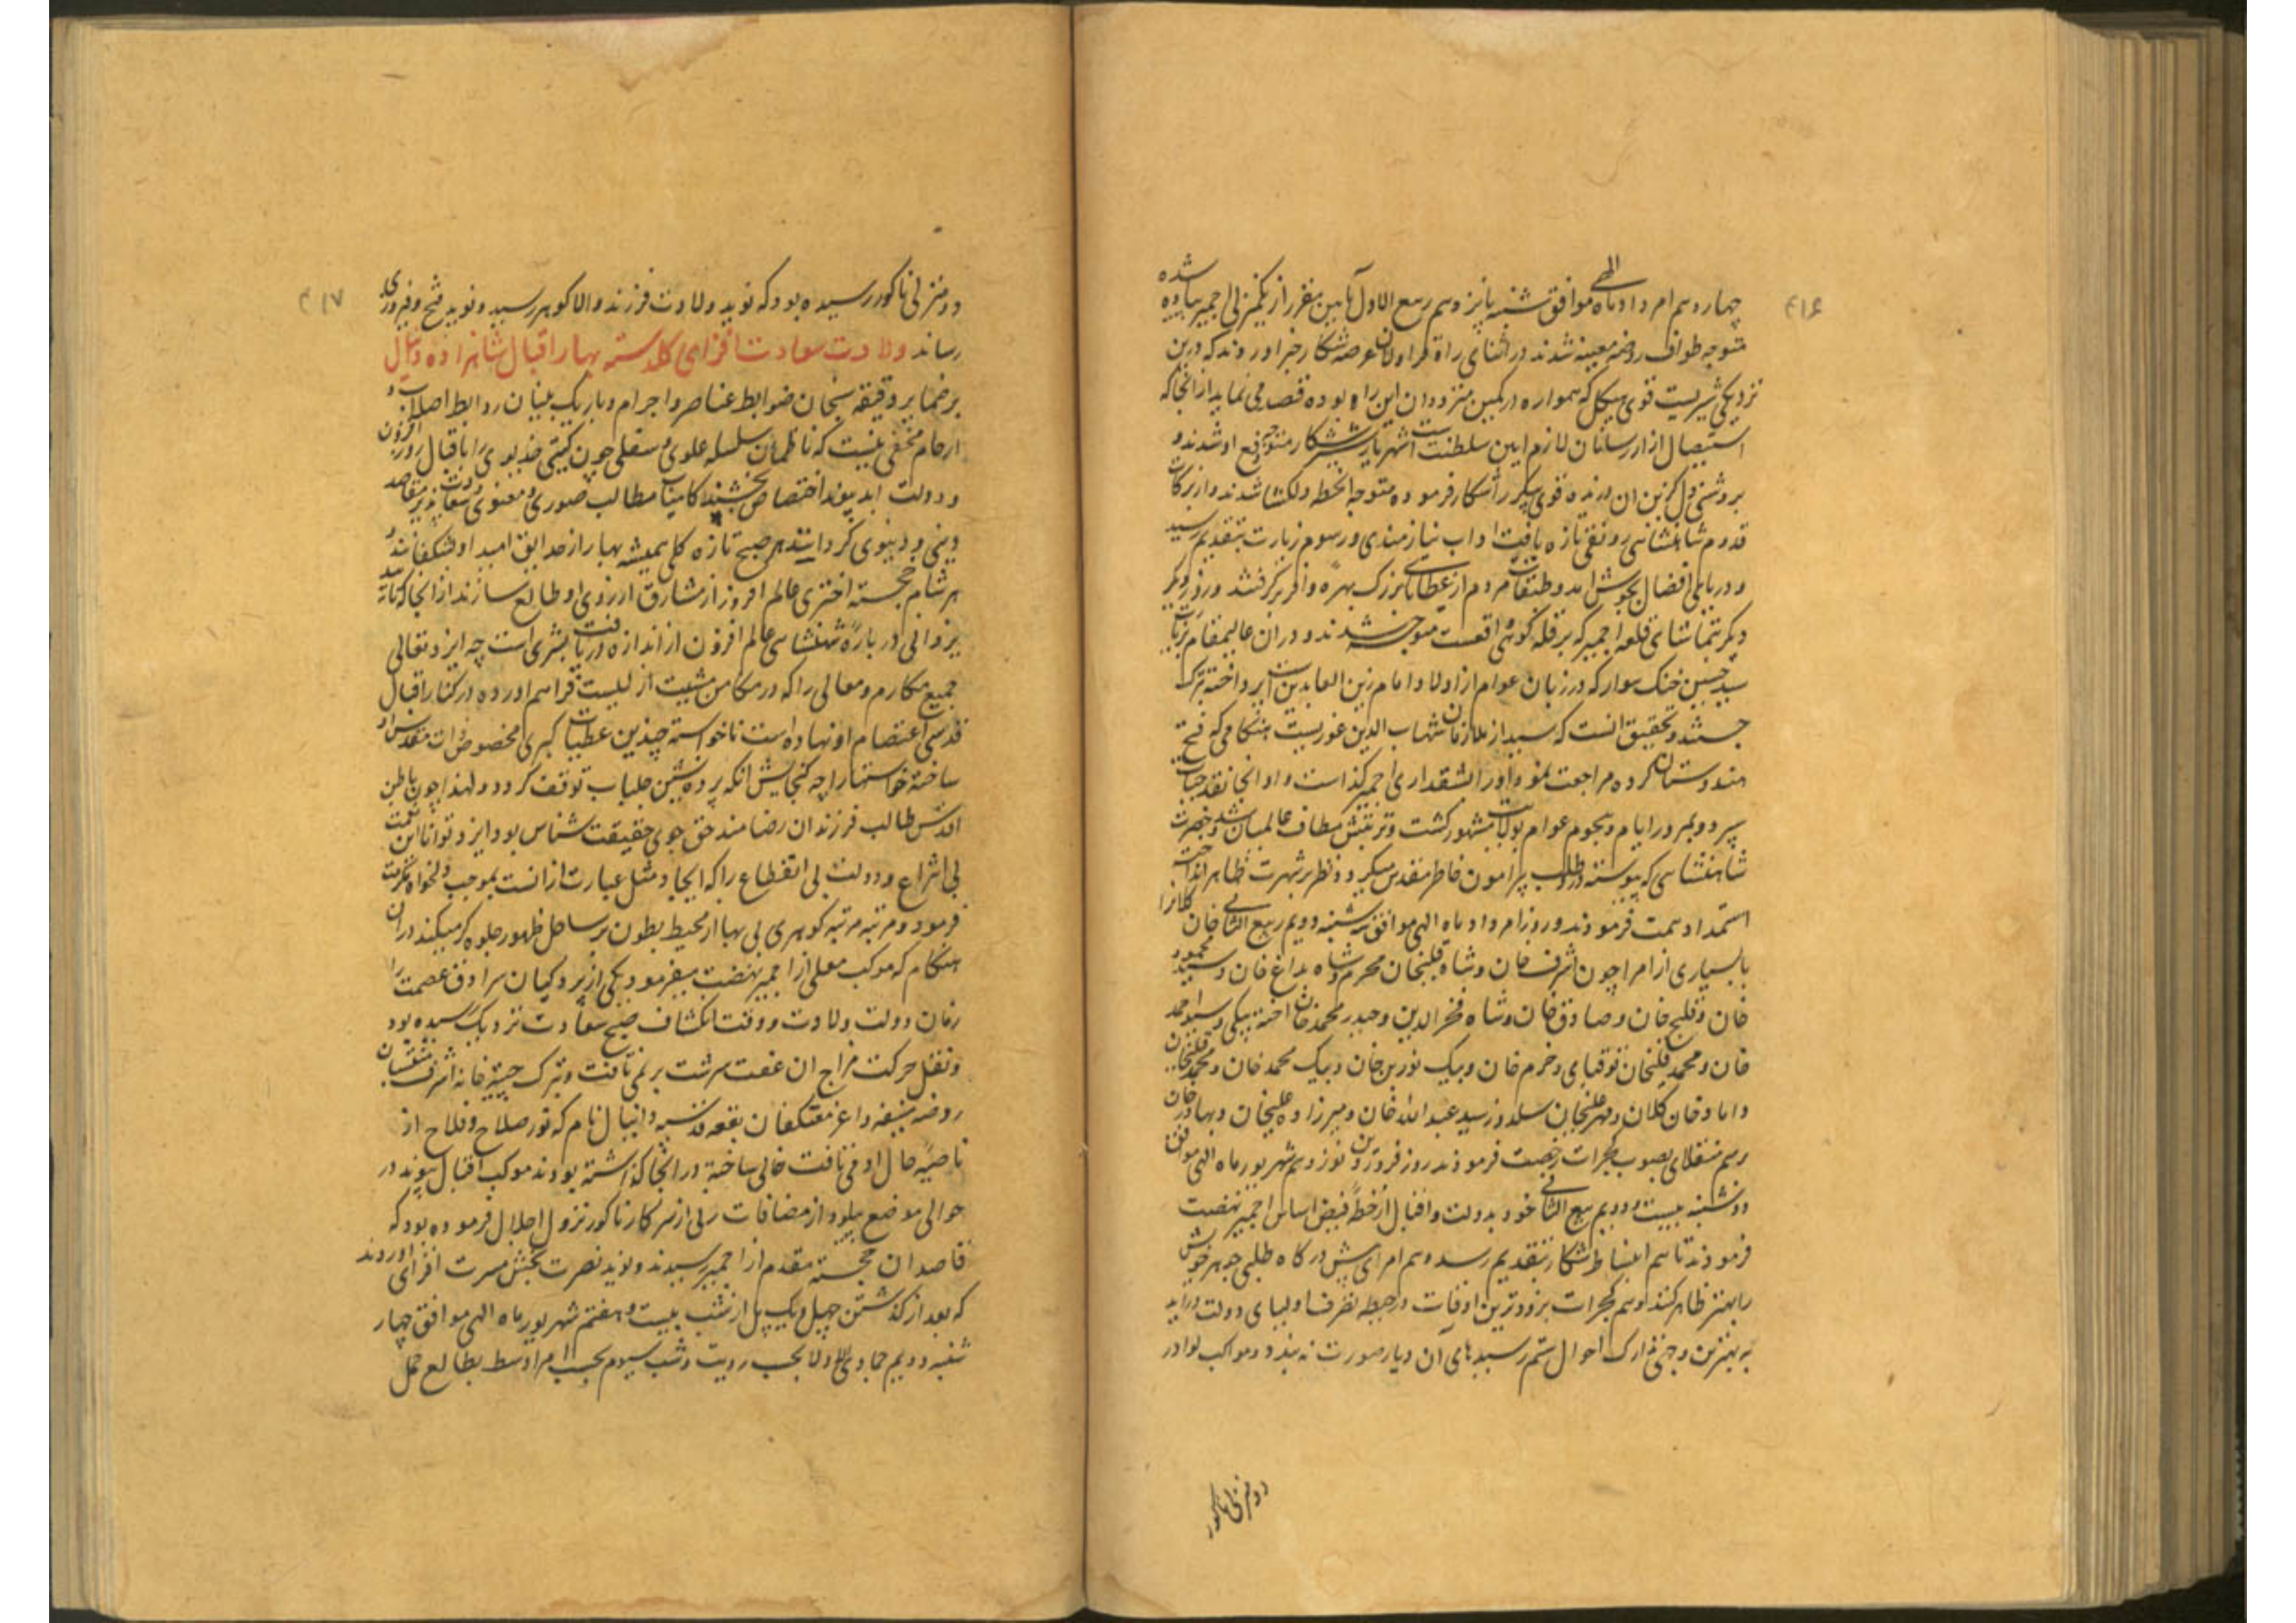 ۴۱۶
چهاردهم امرداد ماه الهی موافق شنبه پانزدهم ربیع الاول بآیین مقرر از یکمنزلی اجمیر پیاده شده
متوجه طواف روضه معینیه شدند در اثنای راه قراولان عرصه شکار خبر اوردند که درین
نزدیکی شیریست قوی هیکل که همواره در کمین مترددان این راه بوده قصد می نماید از انجا که
استیصال ازاررسانان لازم ایین سلطنت است شهریار شیرشکار متوجه دفع او شدند و
قوی پیکر را شکار فرموده متوجه انخطه دلکشا شدند و از برکات
قدوم شاهنشاهی رونقی تازه یافت اداب نیازمندی و رسوم زیارت بتقدیم رسید
و دریای افضال بجوش امد و طبقات مردم از عطایای بزرگ بهره وافر برگرفتند و روز دیگر
بتماشای قلعه اجمیر که بر قله کوهی واقعست متوجه شدند و دران عالیمقام بزیارت
سید حسین خنک سوار که در زبان عوام از اولاد امام زین العابدین است پرداخته تبرک
جستند و تحقیق انست که سید از ملازمان شهاب الدین غوریست هنگامی که فتح
هندوستان کرده مراجعت نمود او را بشقداری اجمیر گذاشت و او انجا نقد حیات
سپرد و بمرور ایام و هجوم عوام بولایت مشهور گشت و تربتش مطاف عالمیان شد و حضرت
شاهنشاهی که پیوسته درد طلب پیرامون خاطر مقدس میگردد نظر بر شهرت ظاهر انداخته
استمداد همت فرمودند و روز امرداد ماه الهی موافق سه شنبه دویم ربیع الثانی خان کلانرا
با بسیاری از امرا چون اشرف خان و شاه قلیخان محرم و شاه بداغ خان و سید محمود
خان و قلیج خان و صادق خان و شاه فخر الدین و حیدر محمد خان اخته بیگی و سید احمد
خان و محمد قلیخان توقبای و خرم خان و بیک نورین خان و بیک محمد خان و محمد قلیخان
داماد خان کلان و مهر علیخان سلدوز و سید عبد الله خان و میرزاده علیخان و بهادر خان
برسم منقلای بصوب گجرات رخصت فرمودند و روز فروردین نوزدهم شهریور ماه الهی موافق
دوشنبه بیست و دویم ربیع الثانی خود بدولت و اقبال از خطه فیض اساس اجمیر نهضت
فرمودند تا هم انبساط شکار بتقدیم رسد و هم امرای پیش درگاه طلبی جوهر خویش
را بهتر ظاهر کنند و هم گجرات بزودترین اوقات در حیطه تصرف اولیای دولت دراید
و به بهترین وجهی تدارک احوال ستم رسیدهای آن دیار صورت بندد و مواکب لوا در
دو منزلی ناکور
۴۱۷
دو منزلی ناکور رسیده بود که نوید ولادت فرزند والا گوهر رسید و نوید فتح و فیروزی
رساند ولادت سعادت افزای گلدسته بهار اقبال شاهزاده دانیال
بر ضمایر دقیقه سنجان ضوابط عناصر و اجرام و باریک بینان روابط اصلاب و
ارحام مخفی نیست که ناظمان سلسله علوی و سفلی چون گیتی خدیوی را باقبال روز افزون
و دولت ابد پیوند اختصاص بخشند کامیاب مطالب صوری و معنوی و سعادت پذیر مقاصد
دینی و دنیوی گردانند هر صبح تازه گلی همیشه بهار از حدایق امید او بشکفانند و
هر شام خجسته اختری عالم افروز از مشارق ارزوی او طالع سازند از انجا که تایید
یزدانی در باره شهنشاهی عالم افزون از اندازه دریافت بشری است چه ایزد تعالی
جمیع مکارم و معالی را که در مکامن مشیت ازلیست فراهم اورده در کنار اقبال
قدسی اعتصام او نهاده است ناخواسته چندین عطیات کبری مخصوص ذات مقدس او
ساخته خواستها را چه گنجایش انکه پرده نشین جلباب توقف گردد و لهذا چون باطن
اقدس طالب فرزندان رضامند حق جوی حقیقت شناس بود ایزد توانا این نعمت
بی انتزاع و دولت بی انقطاع را که ایجاد مثل عبارت ازانست بموجب دلخواه مکرمت
فرمود و مرتبه مرتبه گوهری بی بها از محیط بطون بر ساحل ظهور جلوه گر میکند دران
هنگام که موکب معلی از اجمیر نهضت میفرمود یکی از پردگیان سرادق عصمت را
زمان دولت ولادت و وقت انکشاف صبح سعادت نزدیک رسیده بود
و نقل حرکت مزاج ان عفت سرشت بر نمی تافت و تبرک جسته خانه اشرف منتسبان
روضه منیفه و اعز معتکفان بقعه قدسیه دانیال نام که نور صلاح و فلاح از
ناصیه حال او می تافت خالی ساخته در انجا گذاشته بودند موکب اقبال پیوند در
حوالی موضع پلود از مضافات سرکار ناکور نزول اجلال فرموده بود که
قاصدان خجسته مقدم از اجمیر رسیدند و نوید نصرت بخش مسرت افزای اوردند
که بعد از گذشتن چهل و یک پل از شب بیست و هفتم شهریور ماه الهی موافق چهار
شنبه دویم جمادی الاولی بحسب رویت و شب سیوم بحسب امر اوسط بطالع حمل